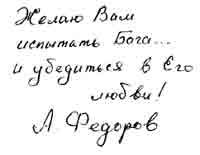 Желаю Вам
испытать Бога...
и убедиться в Его
любви!
А. Федоров